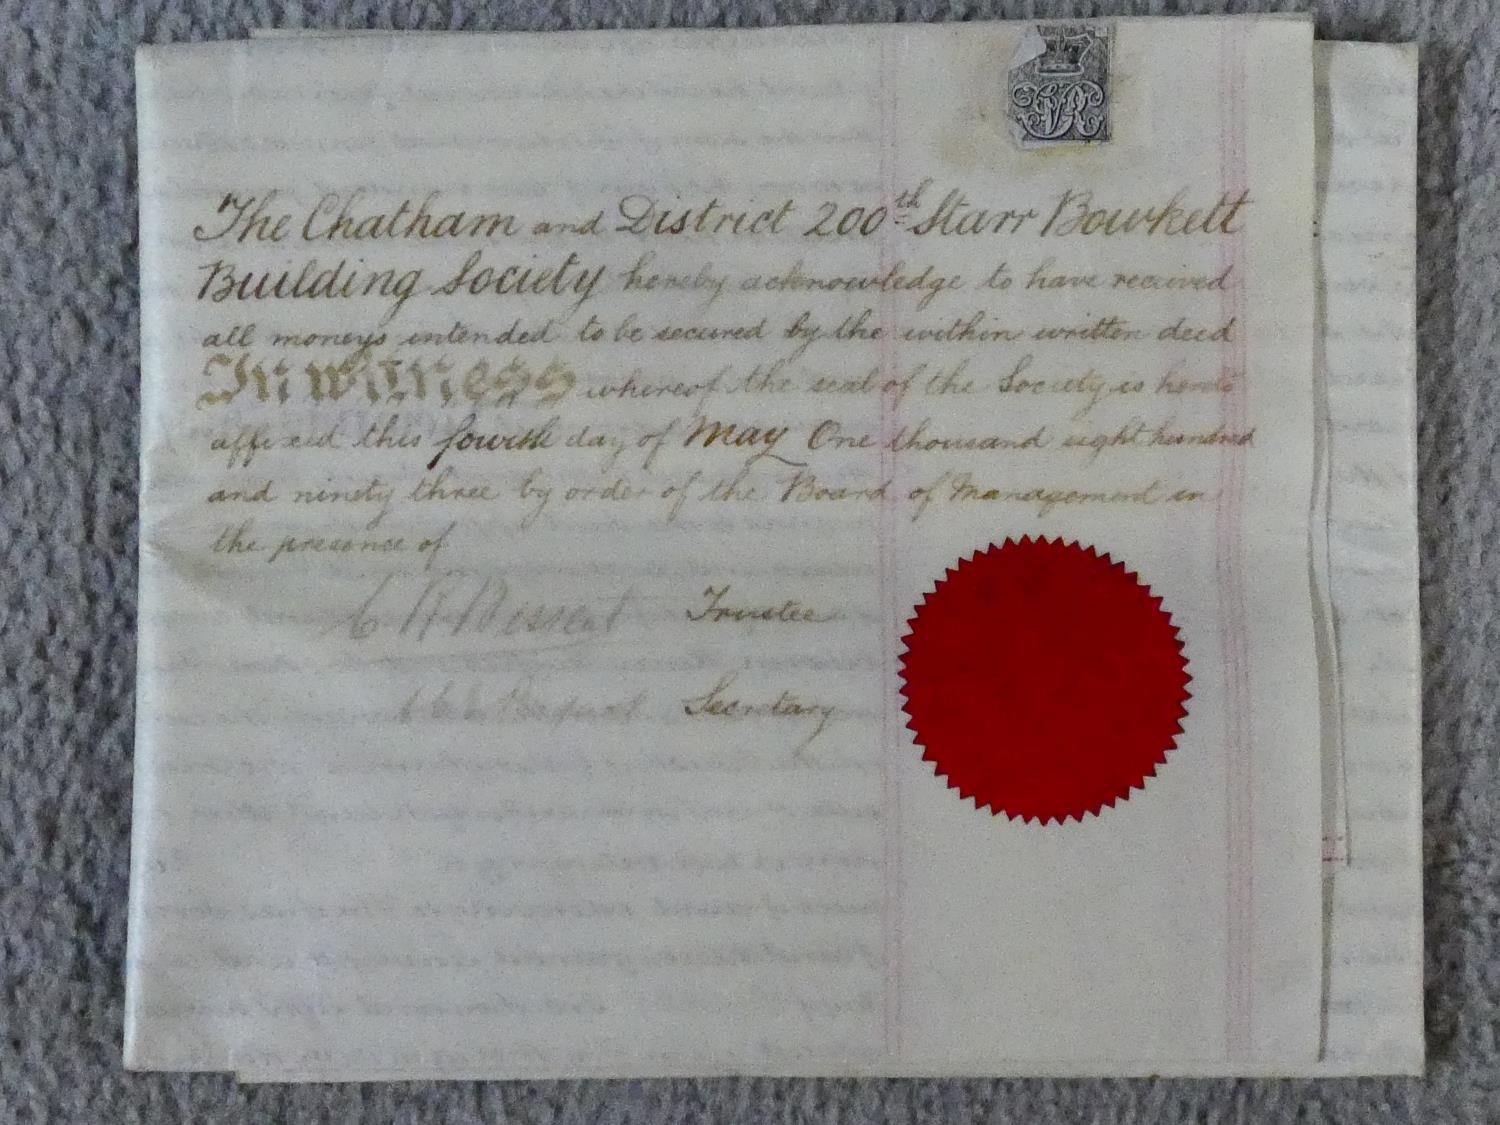 VR
The Chatham and District 200th Starr Bowkett
Building Society hereby acknowledge to have received
all moneys intended to be secured by the within written deed
In witness whereof the seal of the Society is hereto
affixed this fourth day of May One thousand eight hundred
and ninety three by order of the Board of Management in
the presence of
Trustee
Secretary